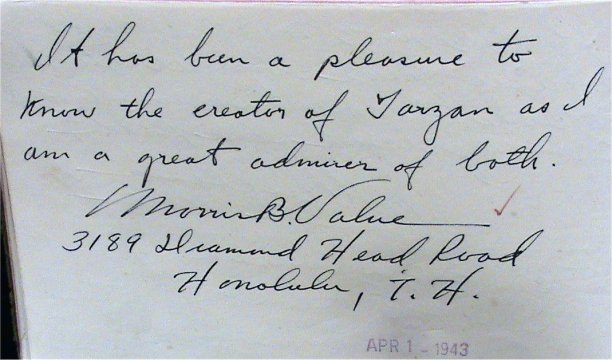 It has been a pleasure to
know the creator of Tarzan as I
am a great admirer of both.
Morris B. Value
3189 Diamond Head Road
Honolulu, T. H.
APR 1 - 1943